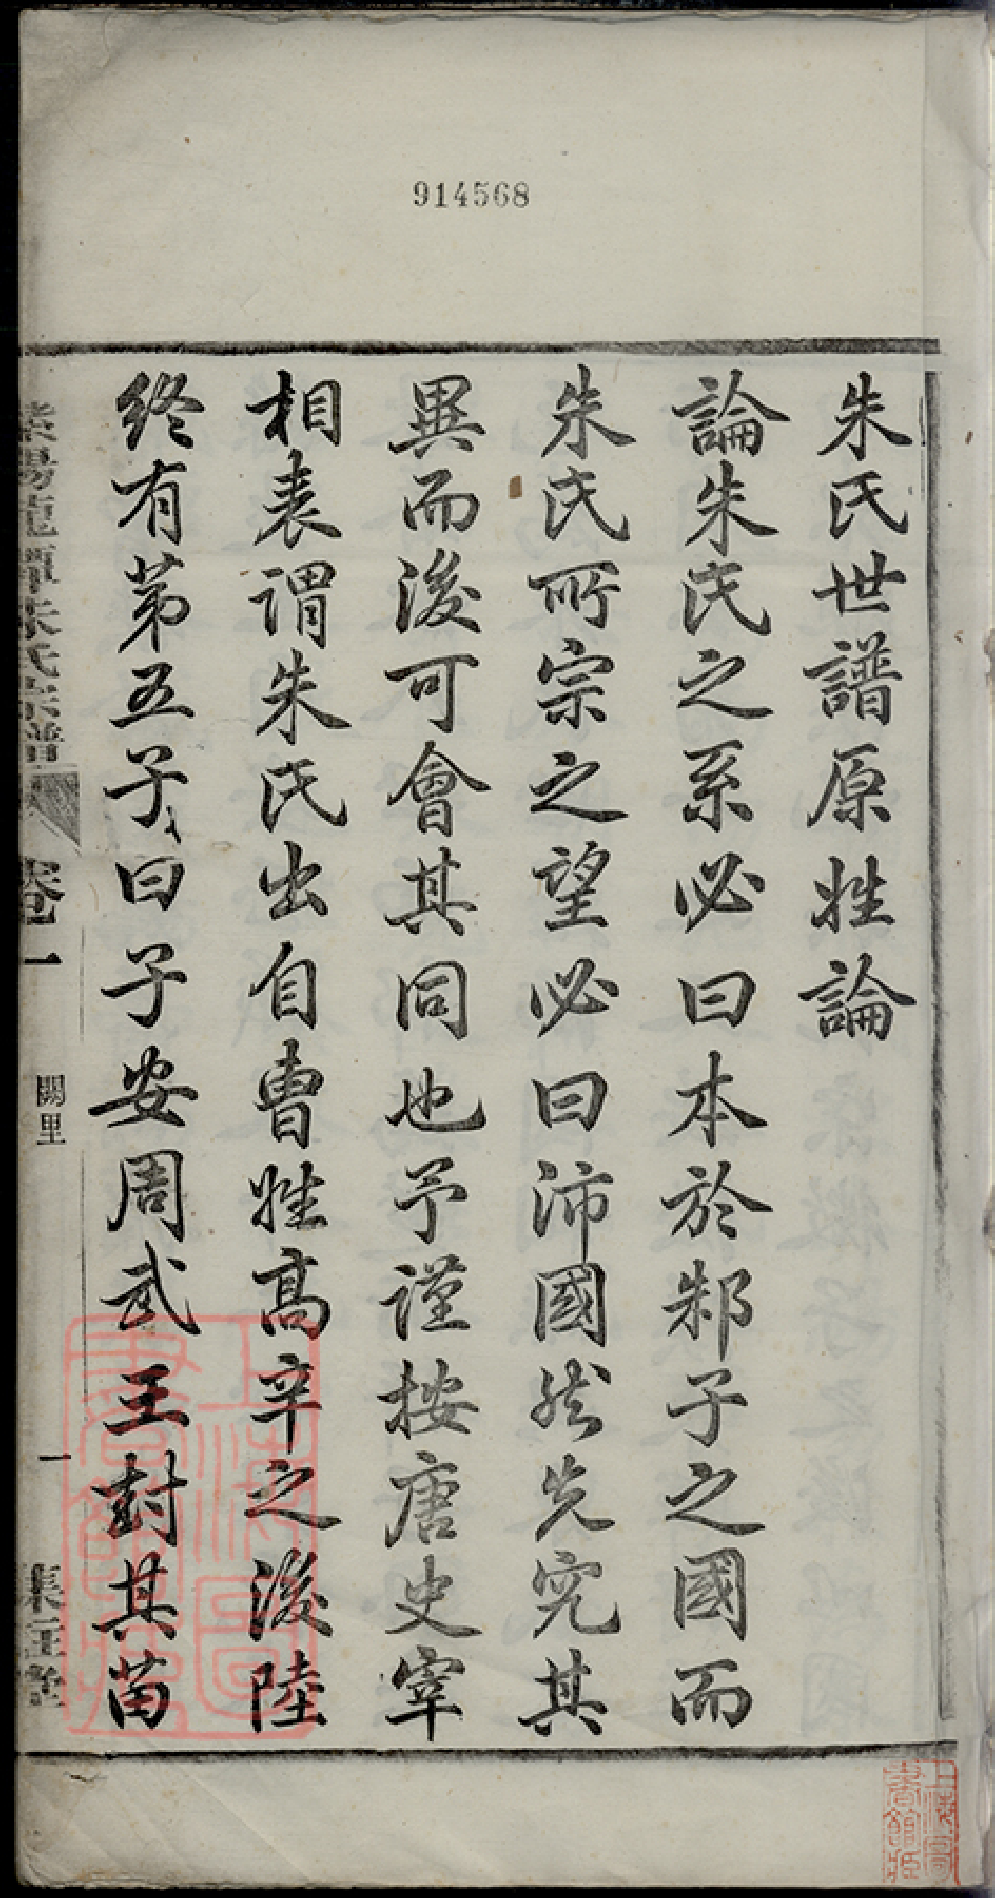 914568
朱氏世譜原姓論
論朱氏之系必曰本於邾子之國而
朱氏所宗之望必曰沛國然先究其
異而後可會其同也予謹按唐史宰
相表謂朱氏出自曹姓高辛之後陸
終有第五子曰子安周武王封其苗
朱氏宗譜
卷一
闕里
一
上海圖書館藏
上海圖書館藏